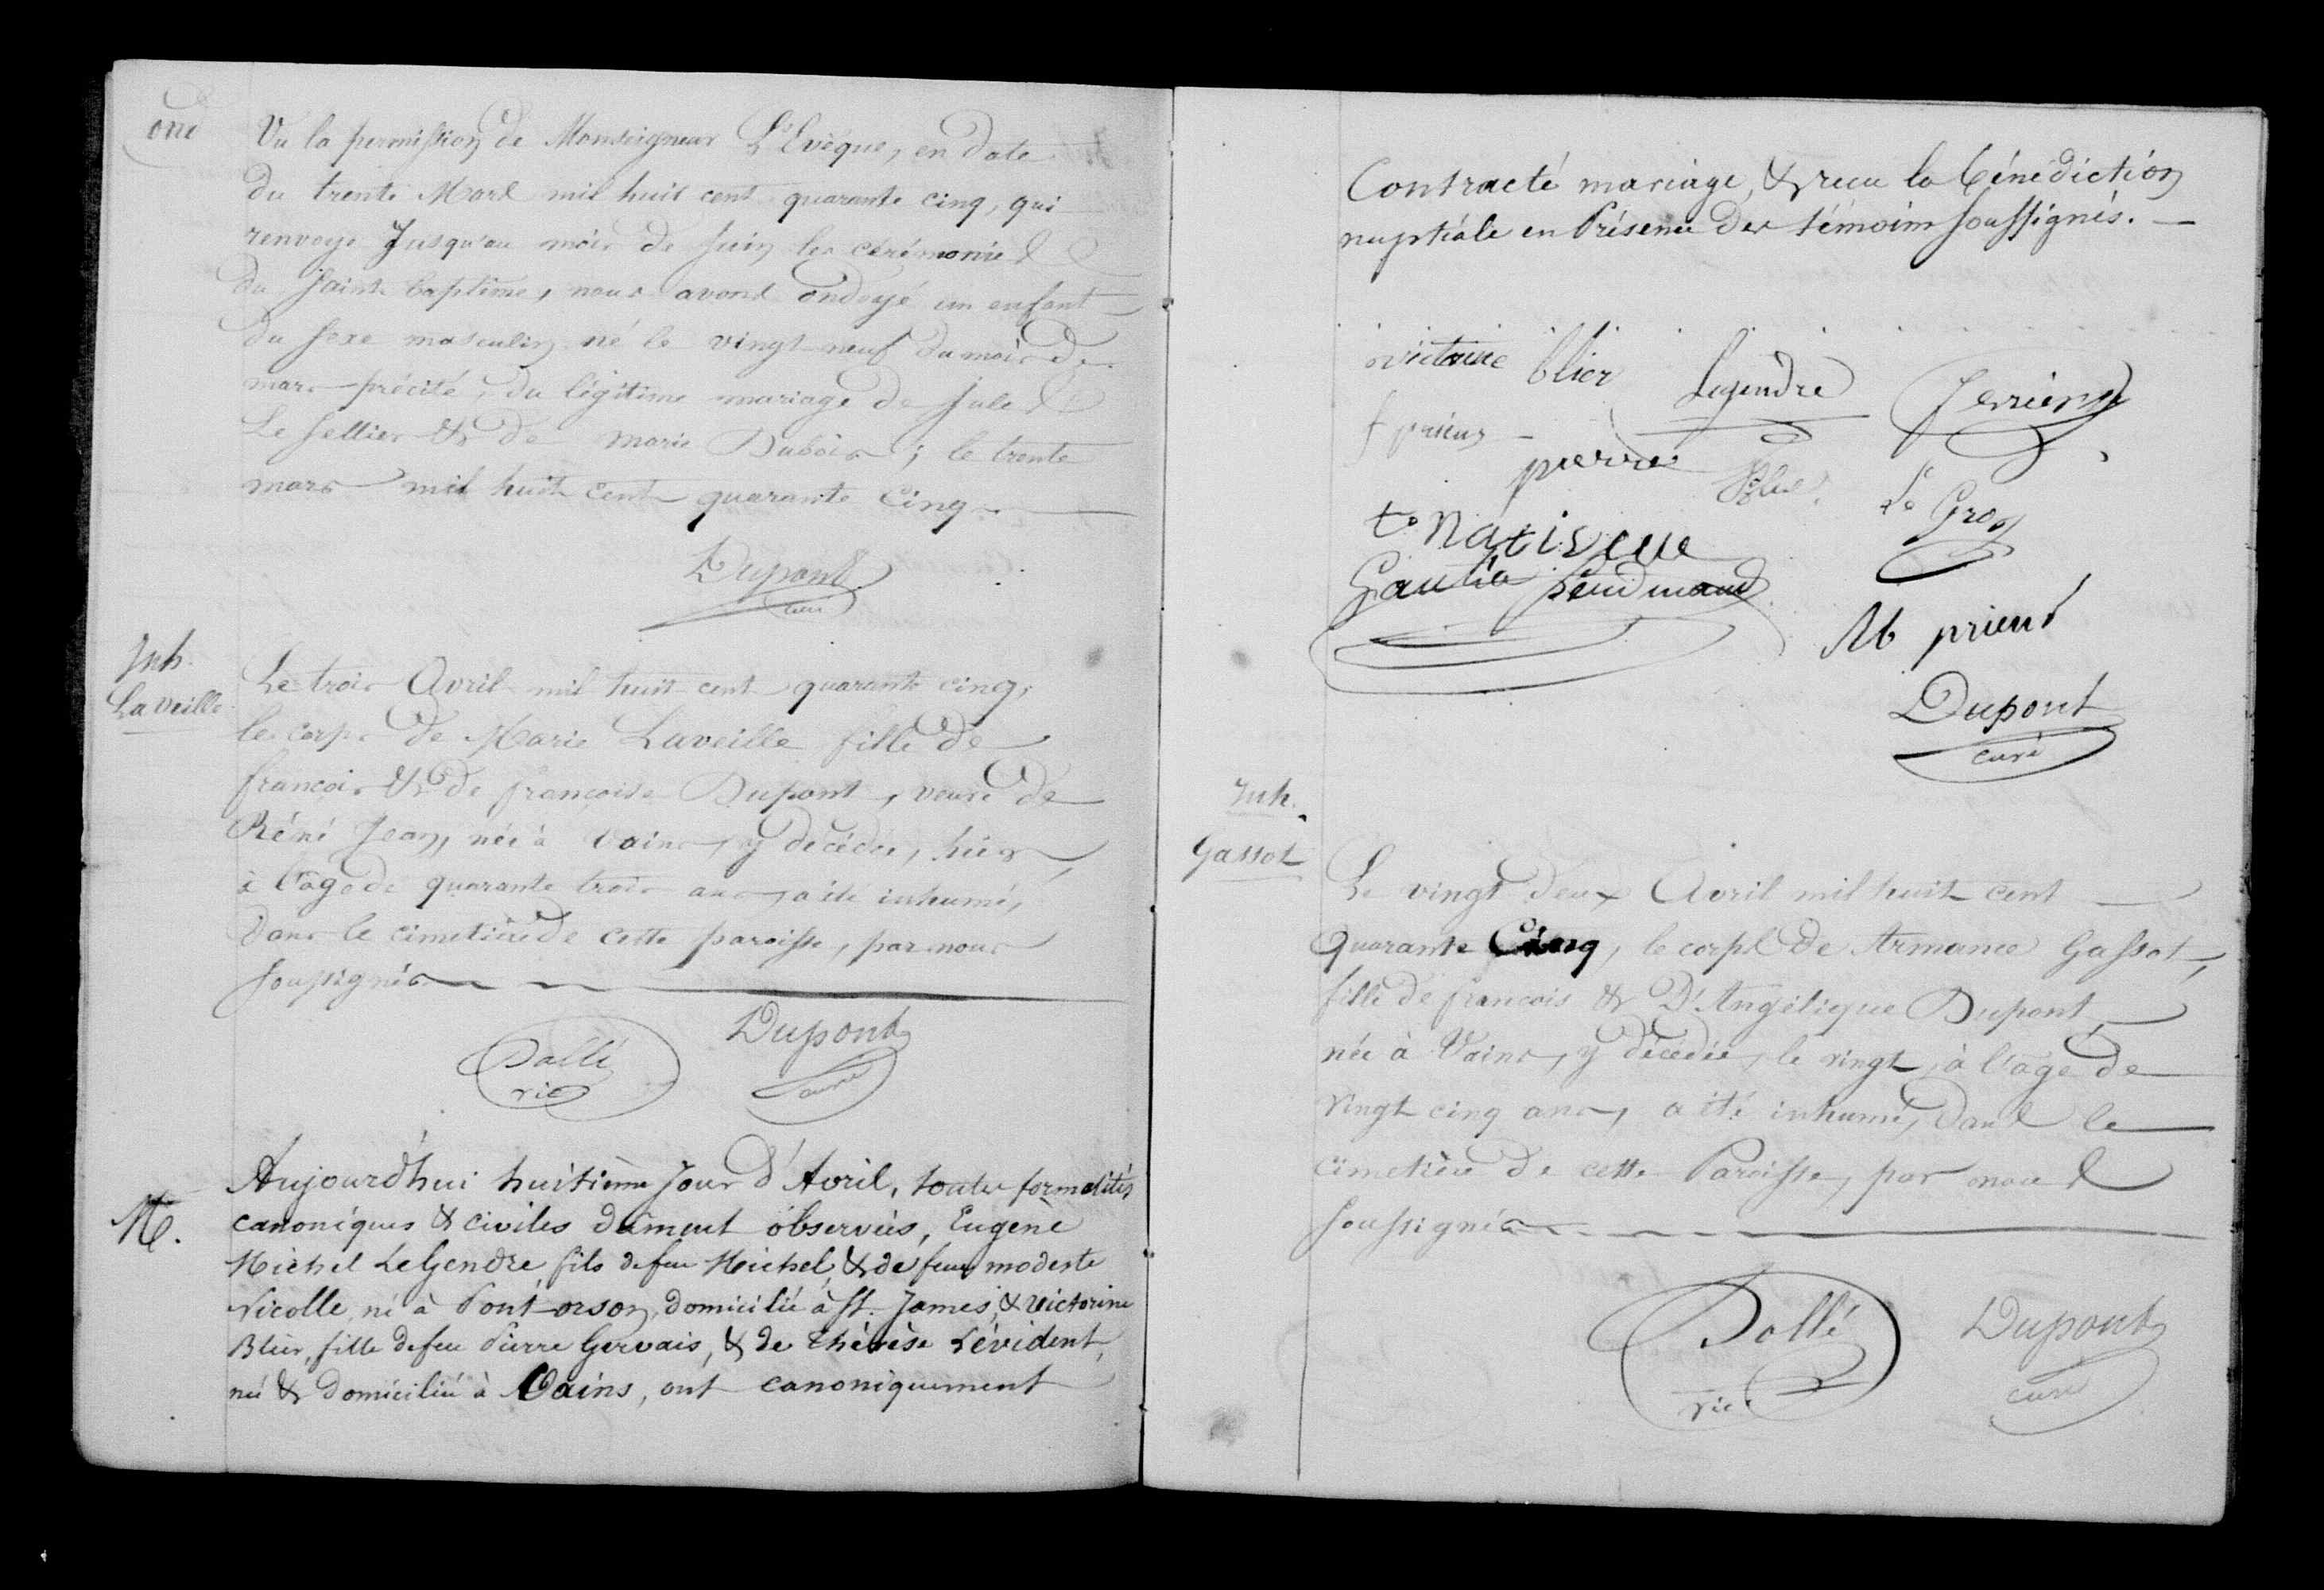 ond
Vu la permission de Monseigneur L'Evêque, en date
du trente Mars mil huit cent quarante cinq, qui
renvoye Jusqu'au mois de Juin les cérémonies
du Saint baptême, nous avons ondoyé un enfant
du sexe masculin né le vingt-neuf du mois de
mars précité, du légitime mariage de Jules
Le Sellier & de marie Dubois ; le trente
mars mil huit cent quarante cinq.
Dupont
curé
Inh.
Laveille
Le trois Avril mil huit cent quarante cinq,
le corps de Marie Laveille fille de
françois & de françoise Dupont, veuve de
Réné Jean, née à Vains, y décédée, hier
à l'âge de quarante trois ans, a été inhumé,
dans le cimetière de cette paroisse, par nous
soussignés
Dallé Dupont
vic curé
M.
Aujourd'hui huitième Jour d'Avril, toutes formalités
canoniques & civiles dûment observées, Eugène
Michel LeGendre, fils de feu Michel, & de feue modeste
Nicolle, né à Pont-orson, domicilié à St. James, & victorine
Blier, fille de feu Pierre Gervais, & de thérèse Lévident,
née & domiciliée à Vains, ont canoniquement
Contracté mariage, & recu la bénédiction
nuptiale en Présence des témoins soussignés.
victorine blier Legendre
f prieur
pierre
Le Gros
M prieur
Dupont
curé
Inh.
Gassot
Le vingt deux Avril mil huit cent
quarante Cinq, le corps de Armance Gassot,
fille de francois & D'Angélique Dupont,
née à Vains, y décédée, le vingt, à l'âge de
vingt cinq ans, a été inhumé, dans le
cimetière de cette Paroisse, par nous
soussignés
Dallé Dupont
vic curé